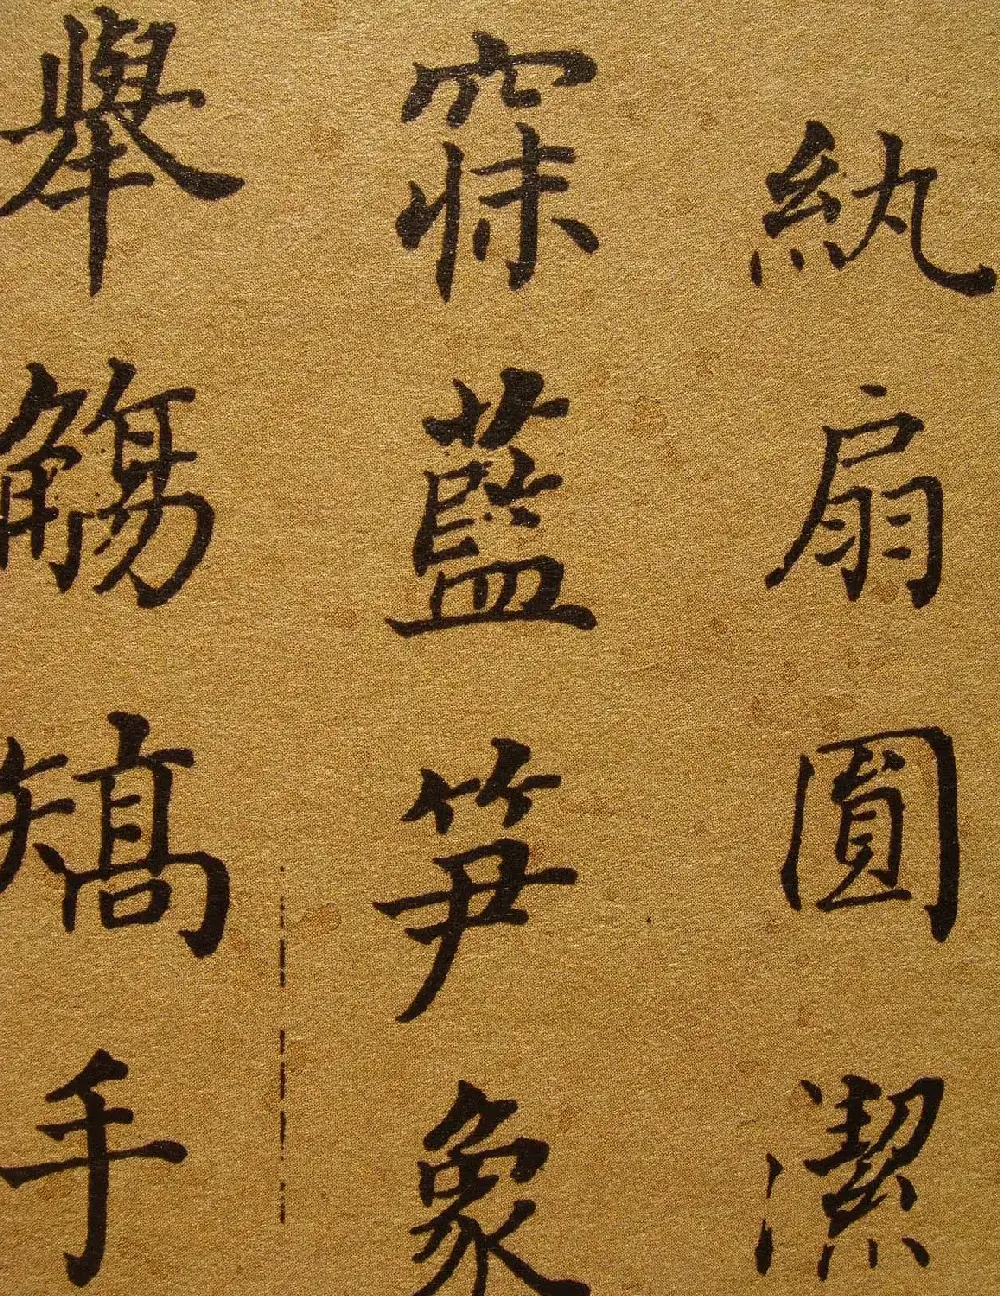 紈扇圓潔
寐藍笋象
舉觴矯手